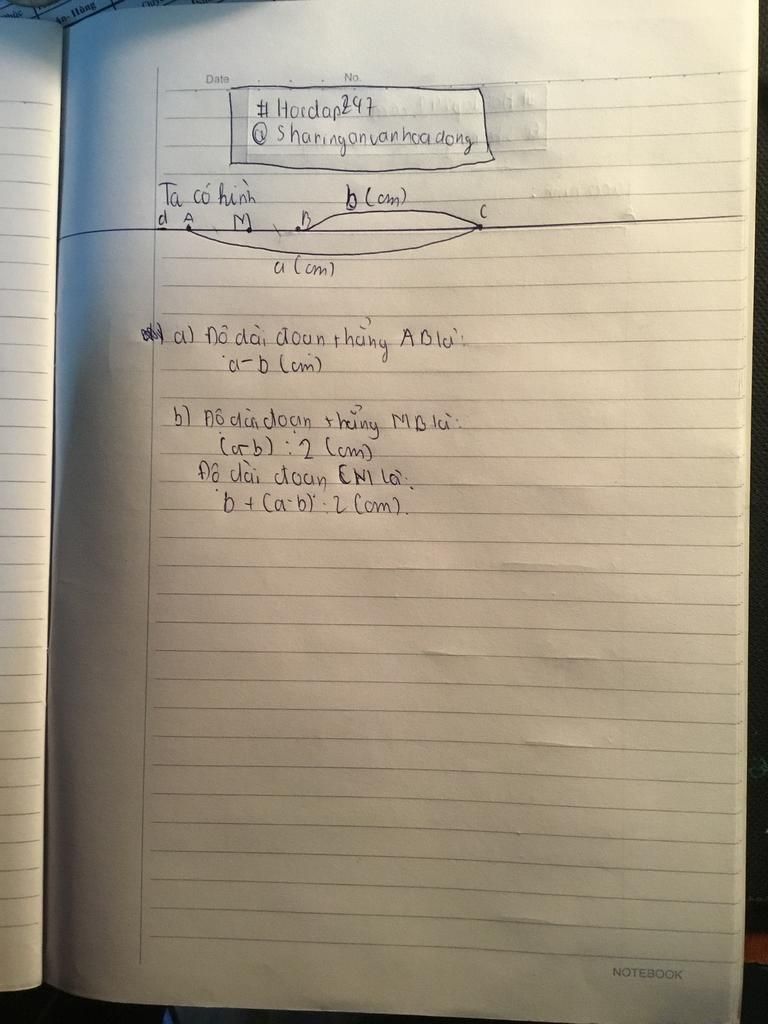 Date No.
# Hoidap247
@ Sharinganvanhoadong
Ta có hình
b (cm)
d A M B C
a (cm)
a) Độ dài đoạn thẳng AB là:
a-b (cm)
b) Độ dài đoạn thẳng MB là:
(a-b) : 2 (cm)
Độ dài đoạn CM là:
b + (a-b) : 2 (cm).
NOTEBOOK